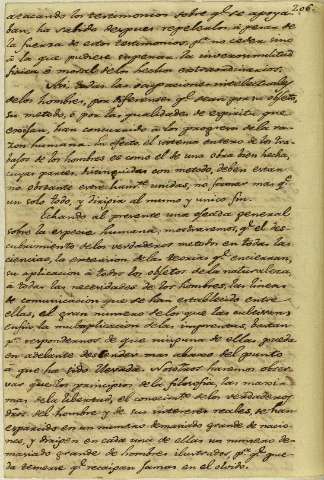 206.
atacando los testimonios sobre q.e se apoya-
ban, ha sabido despues repelerlos, à pesar de
la fuerza de estos testimonios, p.a no ceder sino
à la que pudiese superar la inverosimilitud
fisica ò moral de los hechos extraordinarios.
Asi todas las ocupaciones intelectuales
de los hombres, por diferentes q.e sean por su objeto,
su metodo, ò por las qualidades de espiritu que
exijan, han concurrido à los progresos de la ra-
zon humana. En efecto, el sistema entero de los tra-
bajos de los hombres es como el de una obra bien hecha,
cuyas partes, distinguidas con metodo, deben estar
no obstante estrecham.te unidas, no formar mas q.e
un solo todo, y dirigirse al mismo y unico fin.
Echando al presente una ojeada general
sobre la especie humana, mostraremos, q.e el des-
cubrimiento de los verdaderos metodos en todas las
ciencias, la extension de las teorias q.e encierran,
su aplicacion à todos los objetos de la naturaleza,
à todas las necesidades de los hombres, las lineas
de comunicacion que se han establecido entre
ellas, el gran numero de los que las cultivan,
enfin la multiplicacion de las imprentas, bastan
p.a respondernos de que ninguna de ellas puede
en adelante descender mas abaxo del punto
à que ha sido llevada. Nosotros haremos obser-
var que los principios de la filosofia, las maxi-
mas de la libertad, el conocim.to de los verdaderos dros
del hombre y de sus intereses reales, se han
esparcido en un numero demasiado grande de nacio-
nes, y dirigen en cada una de ellas un numero de-
masiado grande de hombres ilustrados, p.a q.e pue-
da temerse q.e recaigan jamas en el olvido.